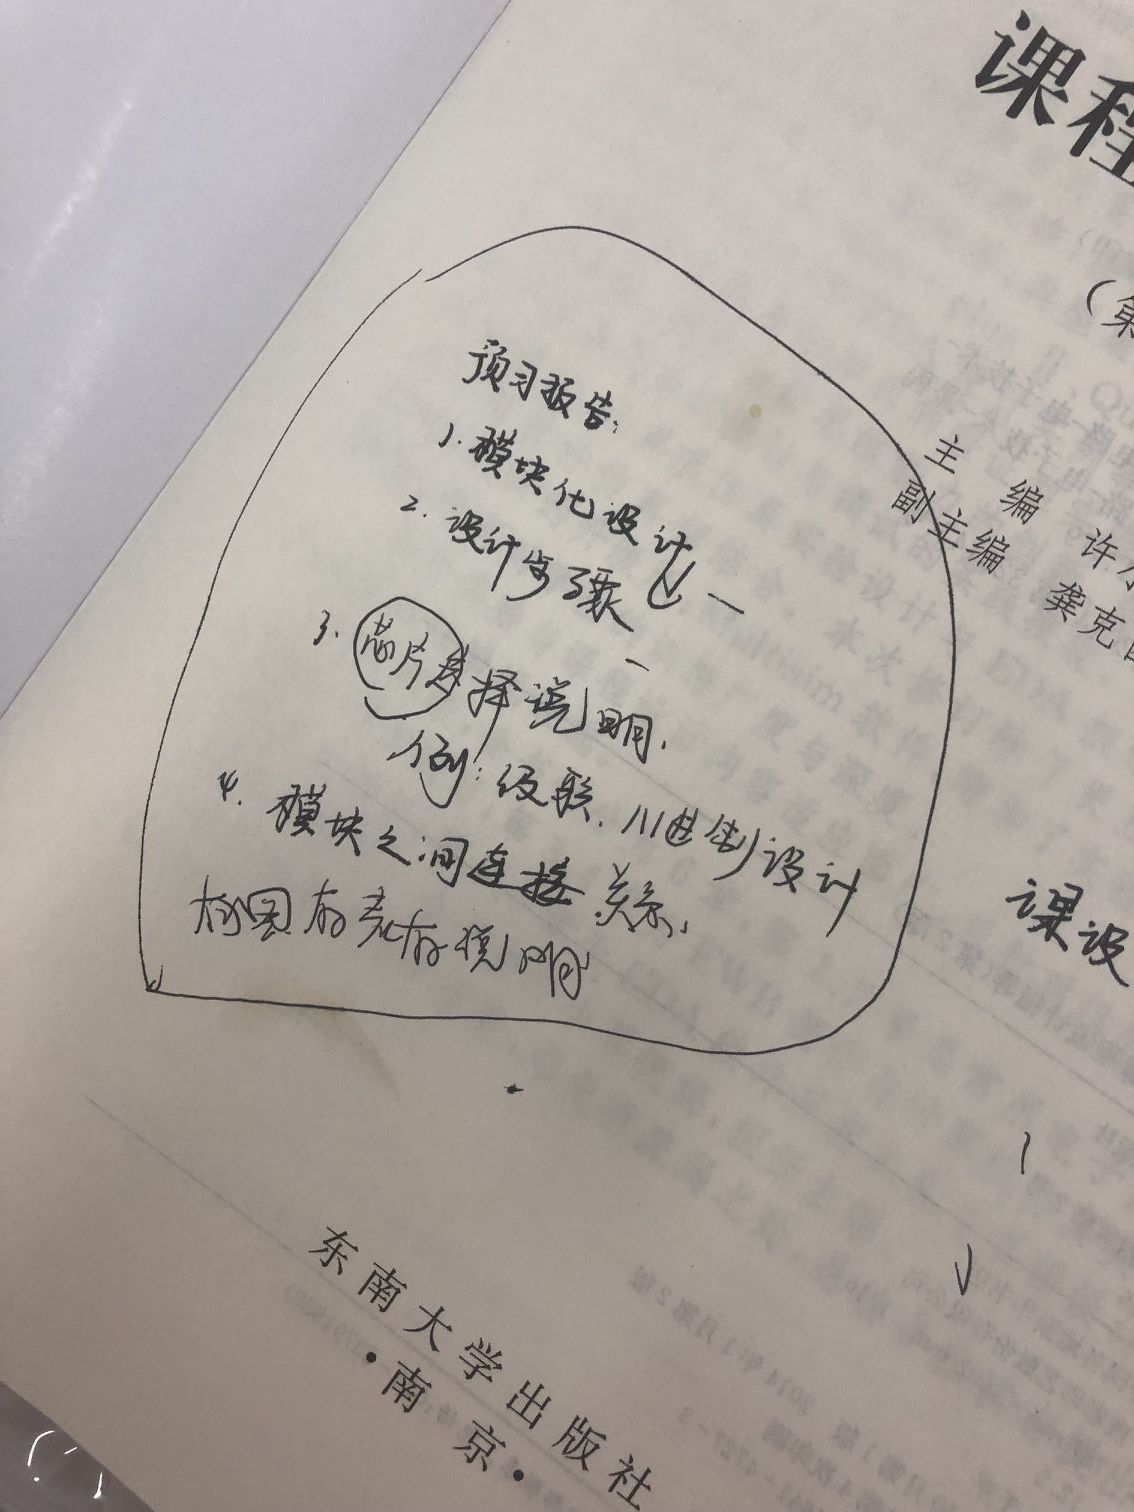 课程
（第
主 编 许
副主编 龚克
预习报告：
1. 模块化设计
2. 设计步骤
3. 芯片选择说明.
例：级联. 川进制设计
4. 模块之间连接关系.
有 有说明
课设
东南大学出版社
·南 京·